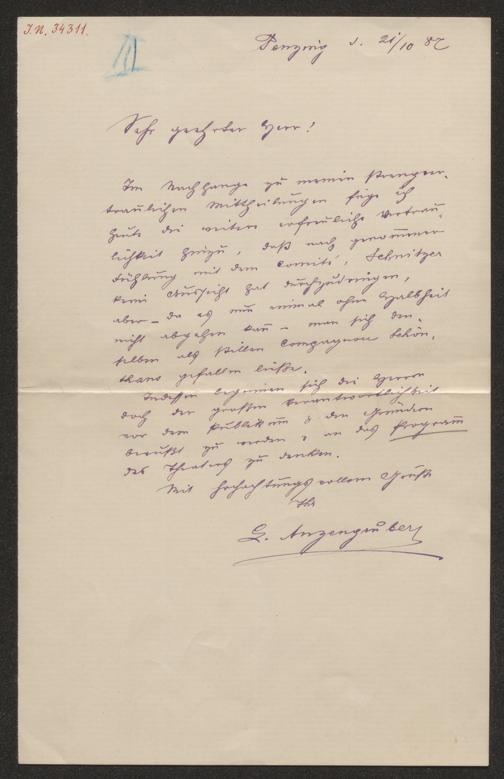 I.N. 34311.
III
Penzing d. 21/10 87
Sehr geehrter Herr!
Im Nachhange zu meinen strengver-
traulichen Mittheilungen füge ich
heute die weitere erfreuliche Vertrau-
lichkeit hinzu, daß nach genommener
Fühlung mit dem Comité, Schnitzer
keine Aussicht hat durchzudringen,
aber – da es nun einmal ohne Halbheit
nicht abgehen kann – man sich den-
selben als stillen Compagnon Schön-
thans gefallen ließe.
Indessen beginnen sich die Herren
doch der großen Verantwortlichkeit
vor dem Publikum & den Gründern
bewußt zu werden & an das Programm
des Theaters zu denken.
Mit hochachtungsvollem Gruße
Ihr
L. Anzengruber